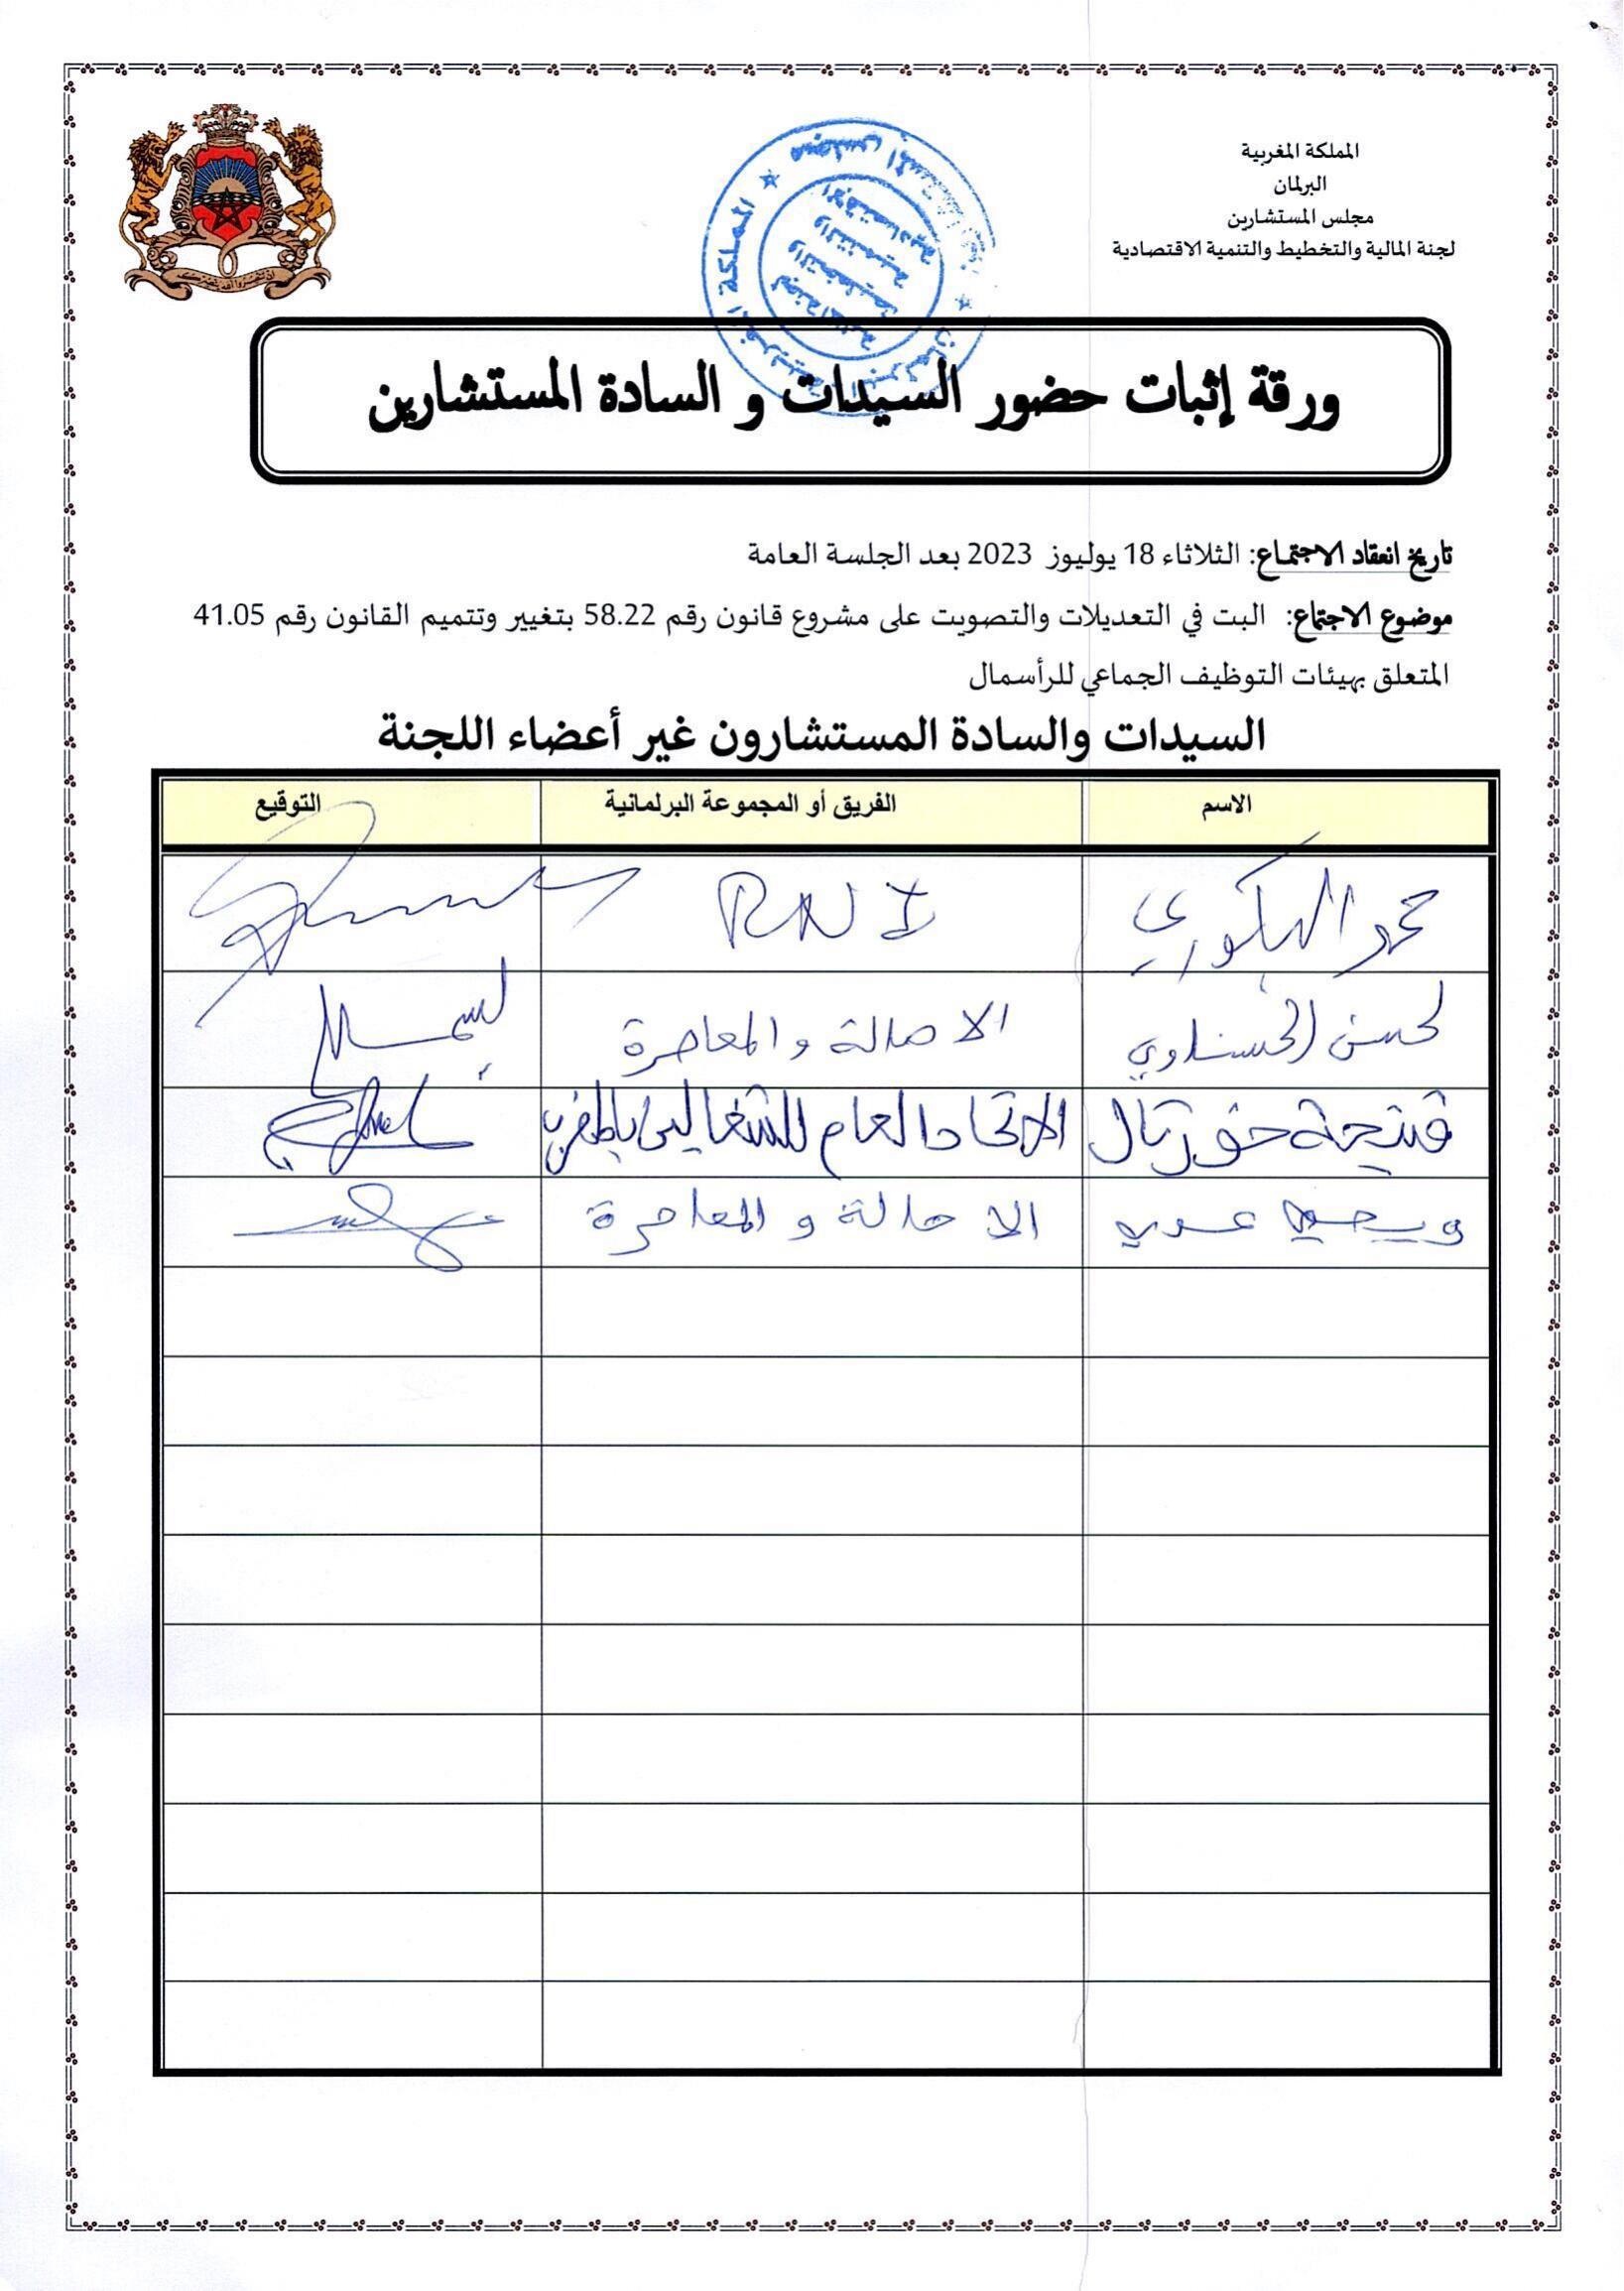 المملكة المغربية
البرلمان
مجلس المستشارين
لجنة المالية والتخطيط والتنمية الاقتصادية
ورقة إثبات حضور السيدات و السادة المستشارين
تاريخ انعقاد الاجتماع: الثلاثاء 18 يوليوز 2023 بعد الجلسة العامة
موضوع الاجتماع: البت في التعديلات والتصويت على مشروع قانون رقم 58.22 بتغيير وتتميم القانون رقم 41.05
المتعلق بهيئات التوظيف الجماعي للرأسمال
السيدات والسادة المستشارون غير أعضاء اللجنة
الاسم الفريق أو المجموعة البرلمانية التوقيع
محمد البكوري RNI
لحسن الحسناوي الاصالة والمعاصرة
فتيحة خورتال الاتحاد العام للشغالين بالمغرب
الاصالة و المعاصرة